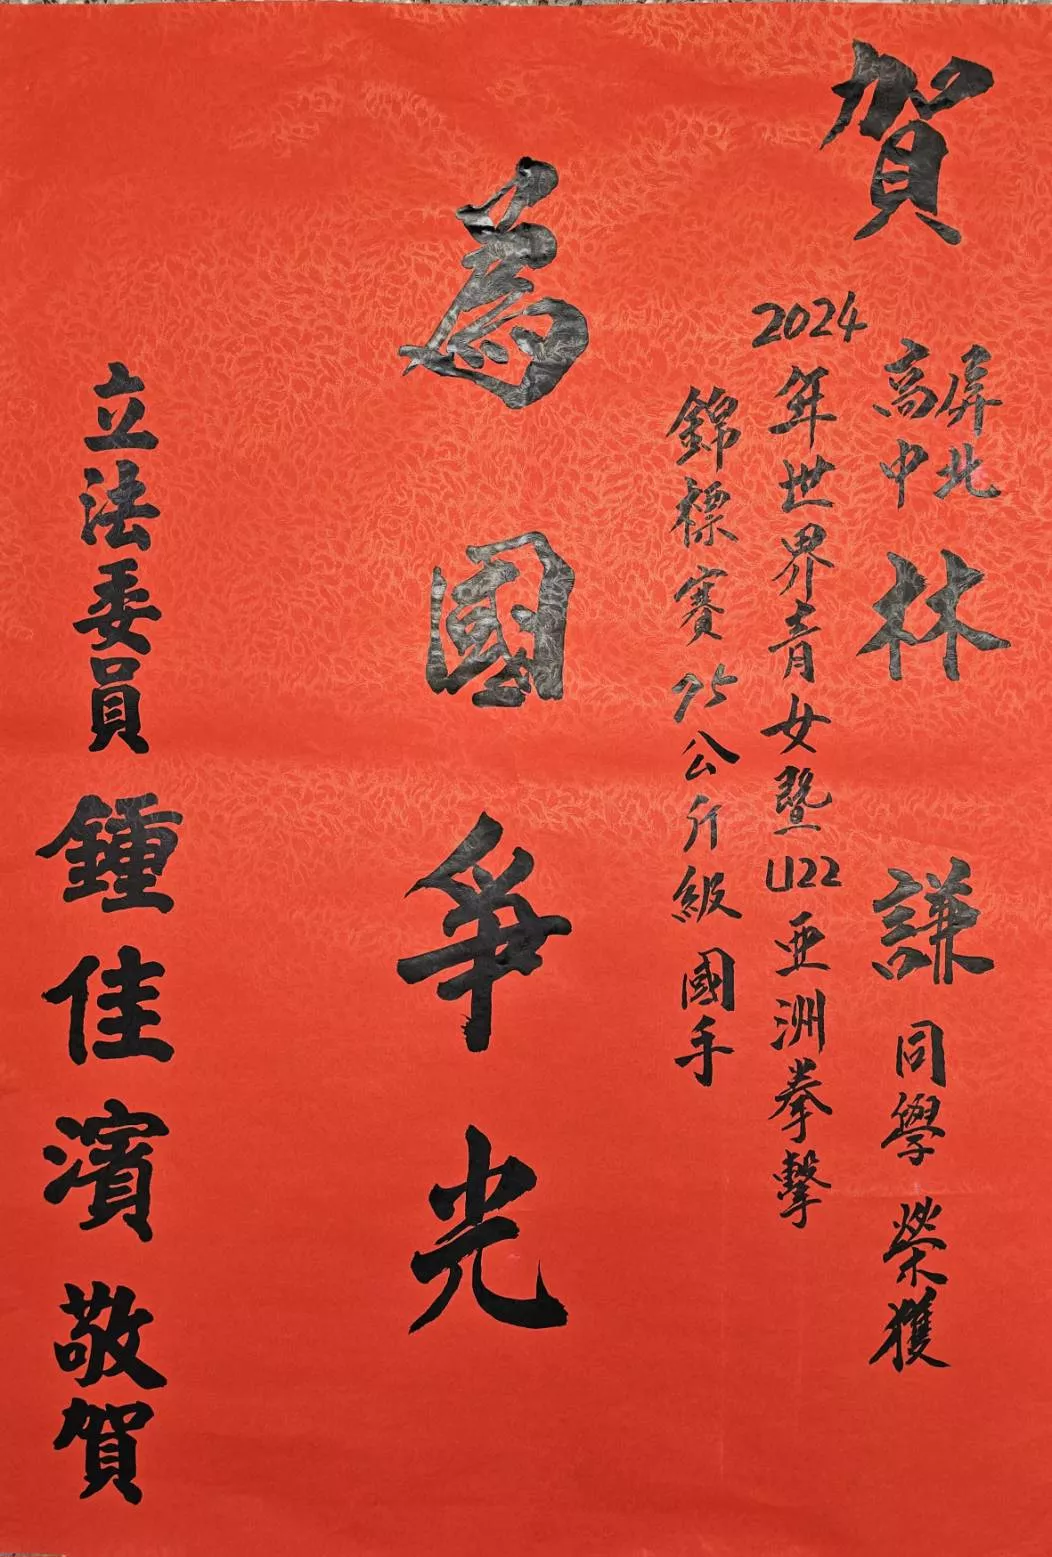 賀
屏北
高中
林謙同學榮獲
2024年世界青女暨U22亞洲拳擊
錦標賽75公斤級國手
為國爭光
立法委員鍾佳濱敬賀